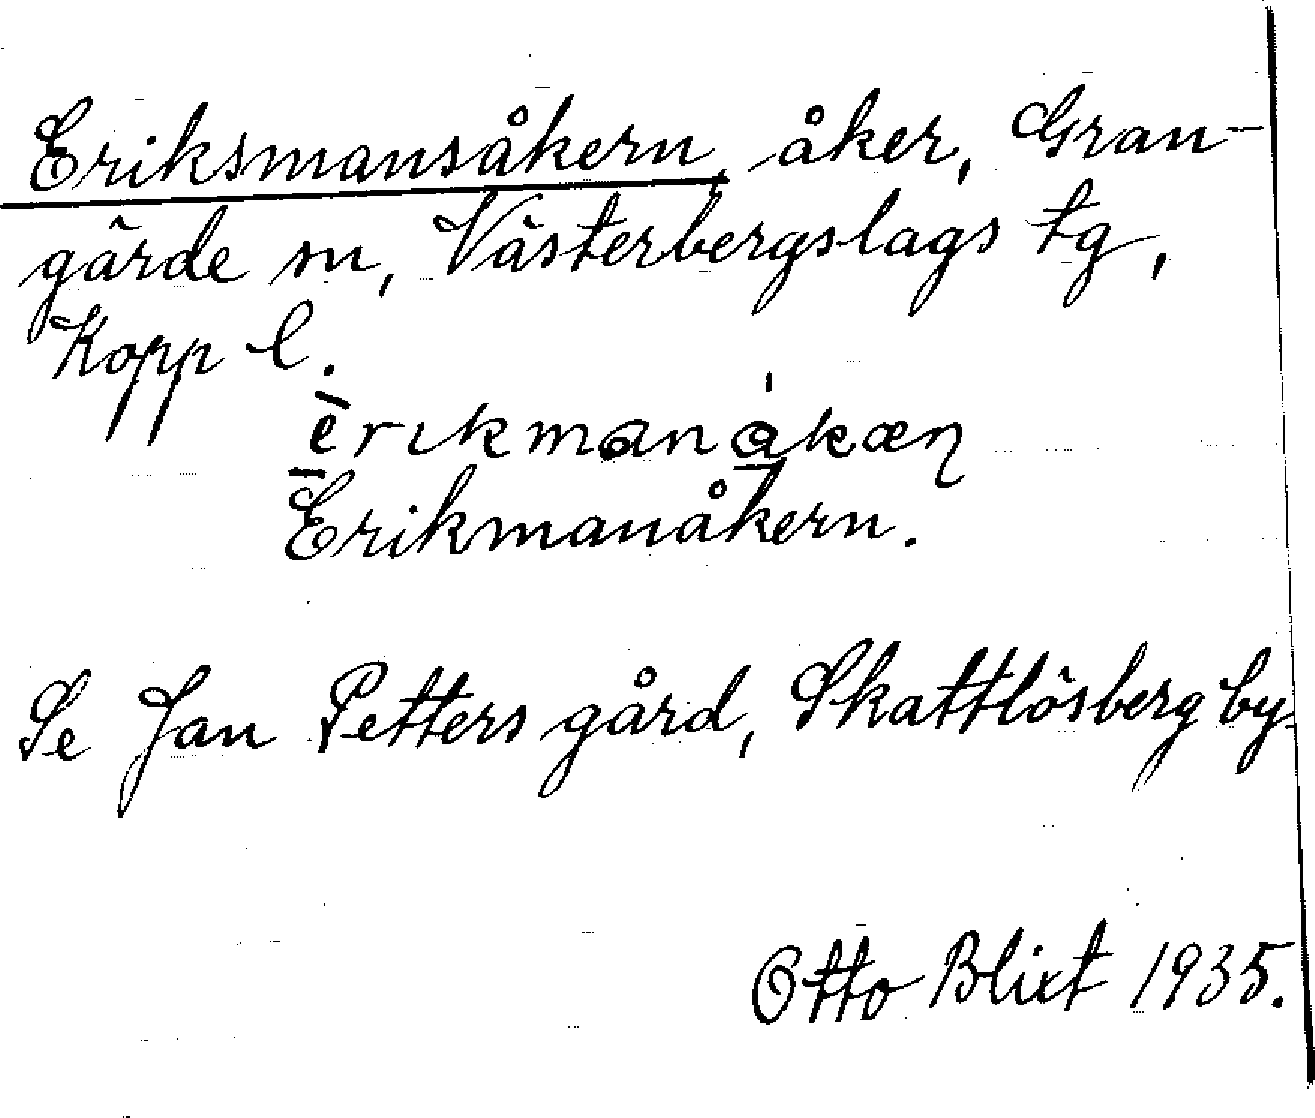 Eriksmansåkern, åker, Gran-
gärde sn, Västerbergslags tg,
Kopp l.
erikmanåkæn
Erikmanåkern.
Se Jan Petters gård, Skattlösberg by.
Otto Blixt 1935.